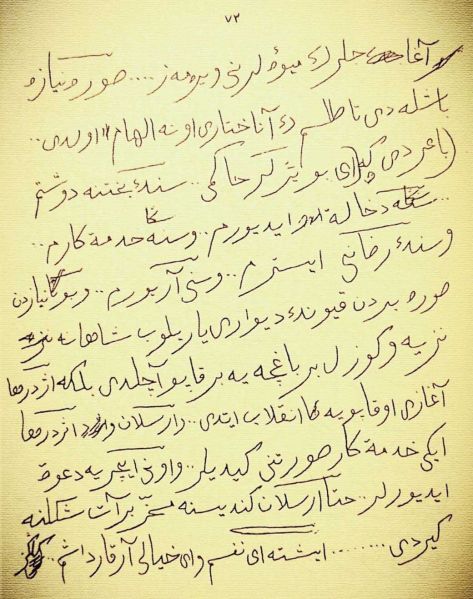 ٧٣
آغاجلرڭ میوه‌لرنی ویره‌مز .... صوڭره نیازه
باشله‌دی ناطلسم دڭ آناختاری اونه الهام اولدی ..
(باغردی که) ای بو یرلرڭ حاکمی .. سنڭ بختنه دوشتم
.. سڭا دخاله ایدیورم .. و سڭا خدمة کارم ..
و سنڭ رضانی ایستیرم .. و سنی آریورم .. و بو نیازدن
صوڭره بردن قیونڭ دیواری یاریلوب شاهانه
نزیه و کوزل بر باغچه‌یه بر قاپو آچلدی بلکه اژدرها
آغزی او قاپویه انقلاب ایتدی .. ارسلان و اژدرها
ایکی خدمة کار صورتنی کیدیلر .. و اونی ایچریه دعوة
ایدیورلر .. حتا ارسلان کندیسنه مسخّر بر آت شکلنه
کیردی ........ ایشته ای نفسم و ای خیالی آرقداشم ..